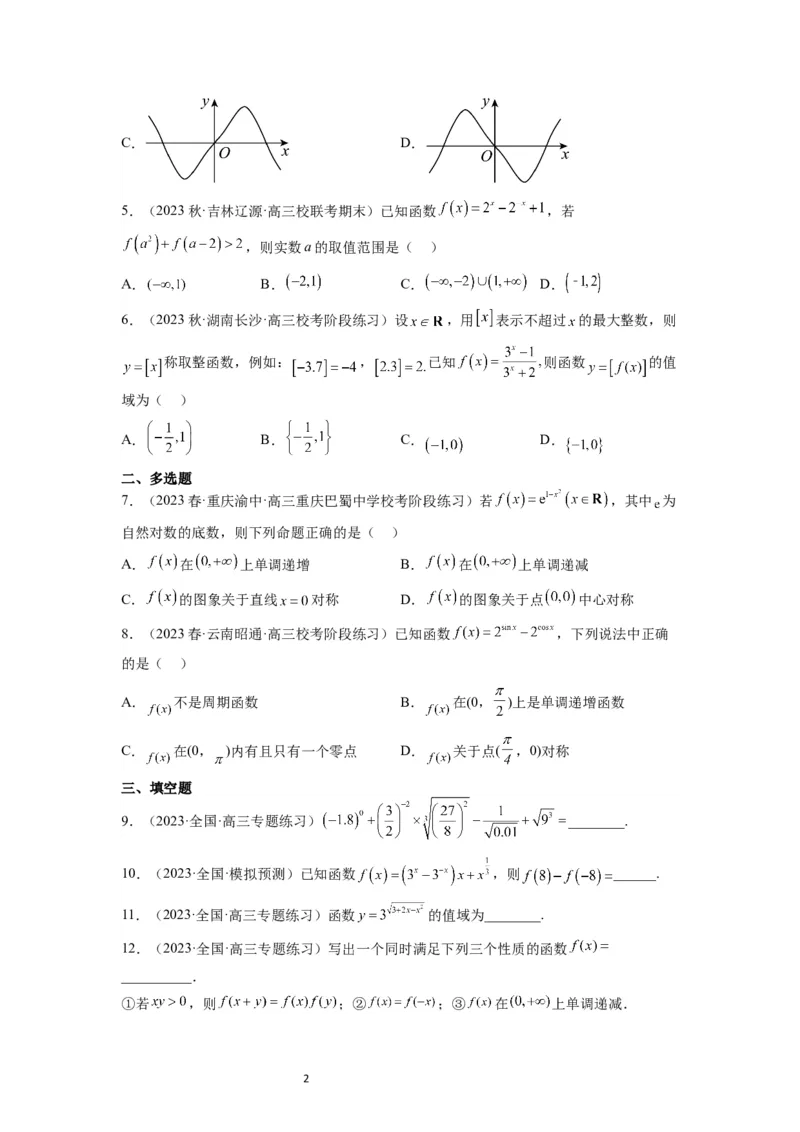 y
y
C.
O
x
D.
O
x
5.（2023秋·吉林辽源·高三校联考期末）已知函数 f(x)=2^x-2^{-x}+1，若
f(a^2)+f(a-2)>2，则实数a的取值范围是（ ）
A. (-∞,1) B. (-2,1) C. (-∞,-2)∪(1,+∞) D. (-1,2)
6.（2023秋·湖南长沙·高三校考阶段练习）设x∈R，用[x]表示不超过x的最大整数，则
y=[x]称取整函数，例如：[-3.7]=-4，[2.3]=2.已知 f(x)=\frac{3^x-1}{3^x+2},则函数 y=[f(x)]的值
域为（ ）
A. (-\frac{1}{2},1) B. {-\frac{1}{2},1} C. (-1,0) D. {-1,0}
二、多选题
7.（2023春·重庆渝中·高三重庆巴蜀中学校考阶段练习）若 f(x)=e^{1-x^2}(x∈R)，其中e为
自然对数的底数，则下列命题正确的是（ ）
A. f(x)在(0,+∞)上单调递增 B. f(x)在(0,+∞)上单调递减
C. f(x)的图象关于直线x=0对称 D. f(x)的图象关于点(0,0)中心对称
8.（2023春·云南昭通·高三校考阶段练习）已知函数 f(x)=2^{sinx}-2^{cosx}，下列说法中正确
的是（ ）
A. f(x)不是周期函数 B. f(x)在(0，\frac{π}{2})上是单调递增函数
C. f(x)在(0，π)内有且只有一个零点 D. f(x)关于点(\frac{π}{4}，0)对称
三、填空题
9.（2023·全国·高三专题练习）(-1.8)^0+(\frac{3}{2})^{-2}×\sqrt[3]{(\frac{27}{8})^2}-\frac{1}{\sqrt{0.01}}+\sqrt{9^3}=________.
10.（2023·全国·模拟预测）已知函数 f(x)=(3^x-3^{-x})x+x^{\frac{1}{3}}，则 f(8)-f(-8)=______.
11.（2023·全国·高三专题练习）函数 y=3^{\sqrt{3+2x-x^2}} 的值域为________.
12.（2023·全国·高三专题练习）写出一个同时满足下列三个性质的函数 f(x)=
__________.
①若xy>0，则 f(x+y)=f(x)f(y)；②f(x)=f(-x)；③f(x)在(0,+∞)上单调递减.
2